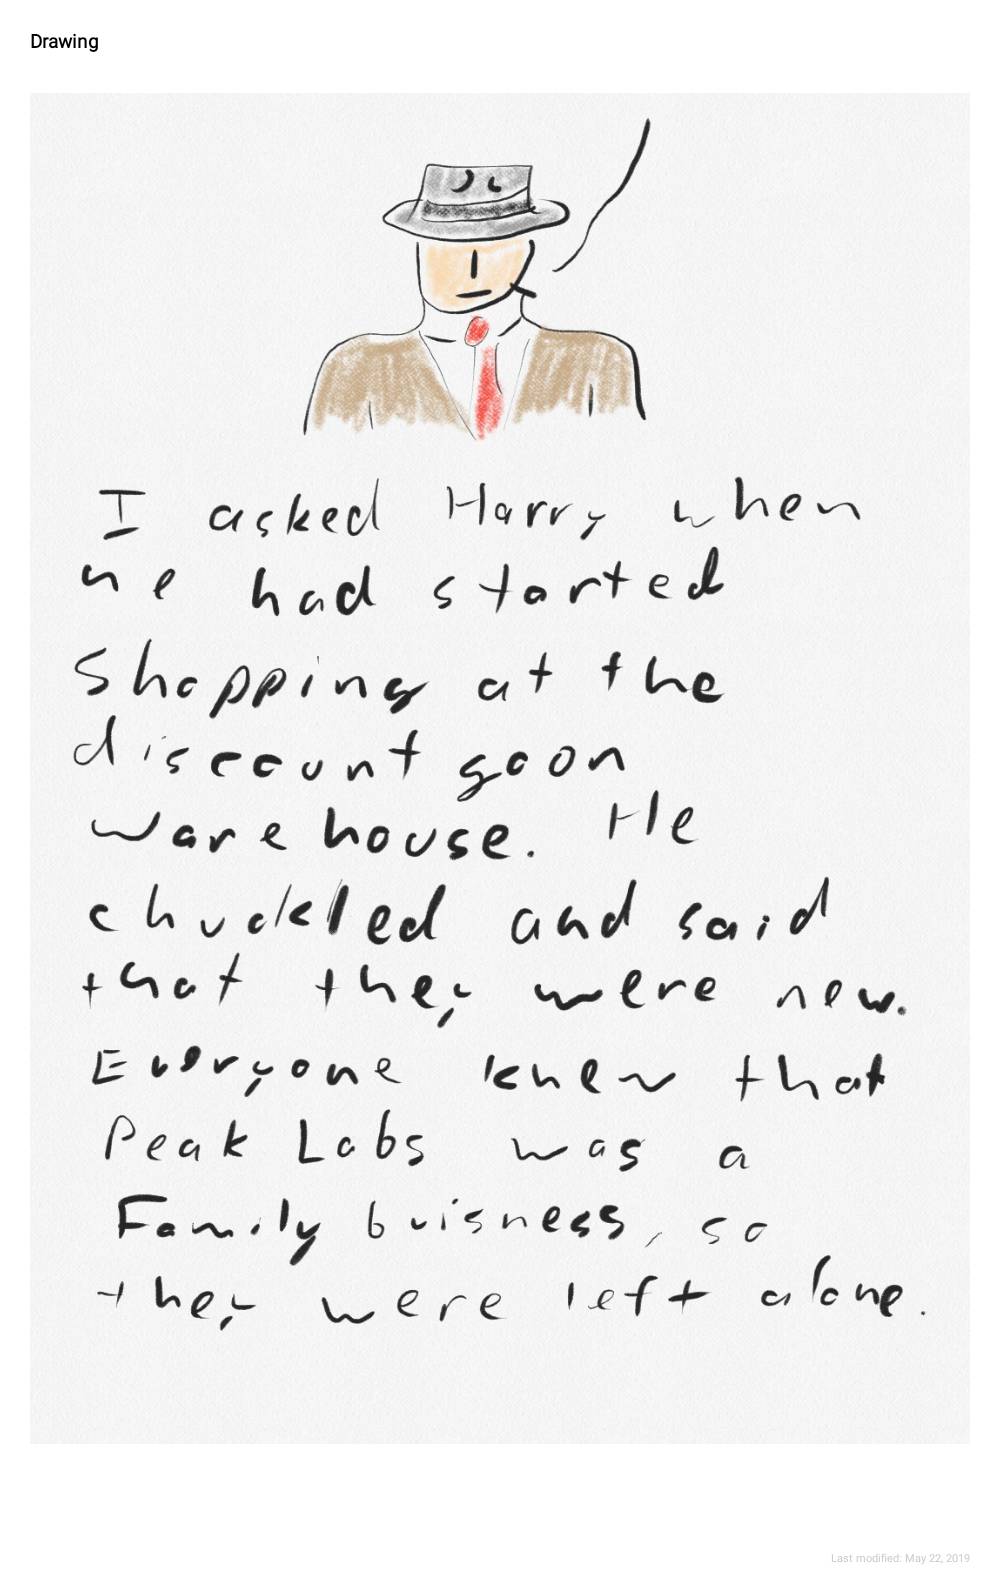 Drawing
I asked Harry when
he had started
Shopping at the
discount goon
warehouse. He
chuckled and said
that they were new.
Everyone knew that
Peak Labs was a
Family buisness, so
they were left alone.
Last modified: May 22, 2019